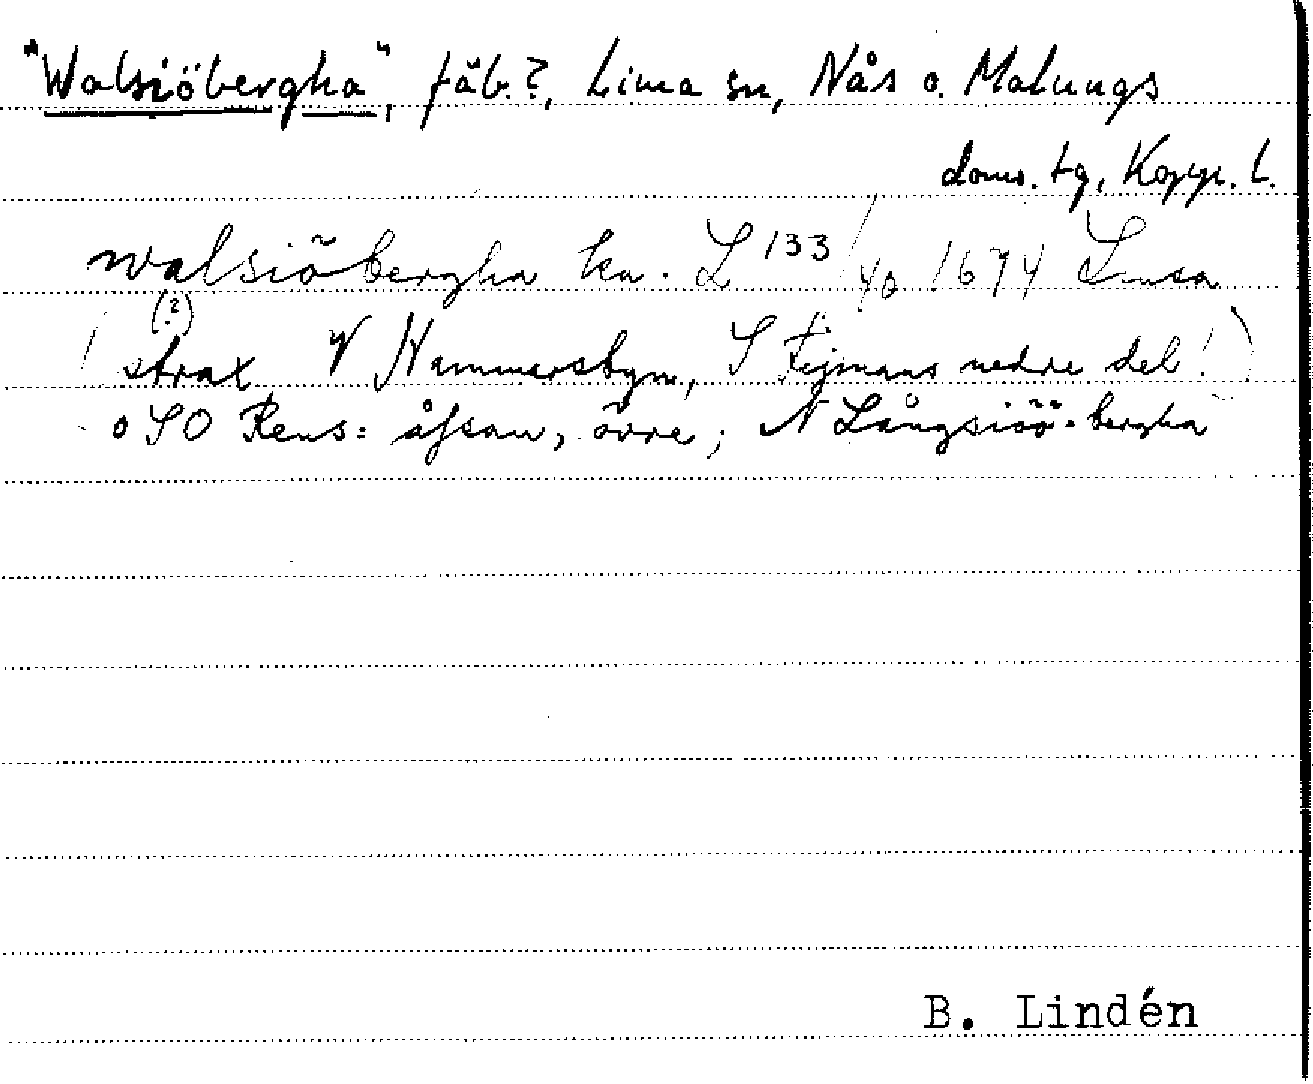 "Walsiöbergha", fäb.?, Lima sn, Nås o. Malungs
doms. tg, Kopp. l.
walsiöbergha ka. L 133/40 1674 Limsa
(?)
(strax V Hammarsbyn, S Fejmans nedre del!)
o SO Rens= åhsan, övre; N Långsiöö=bergha
B. Lindén